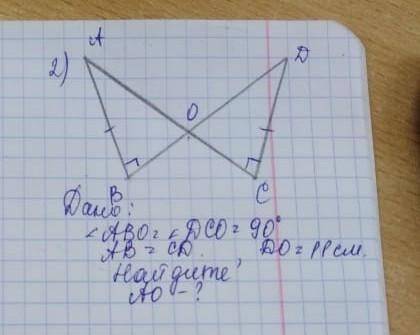 2)
A
D
O
B
C
Дано:
∠ABO = ∠DCO = 90°
AB = CD. DO = 11 см.
Найдите,
AO - ?